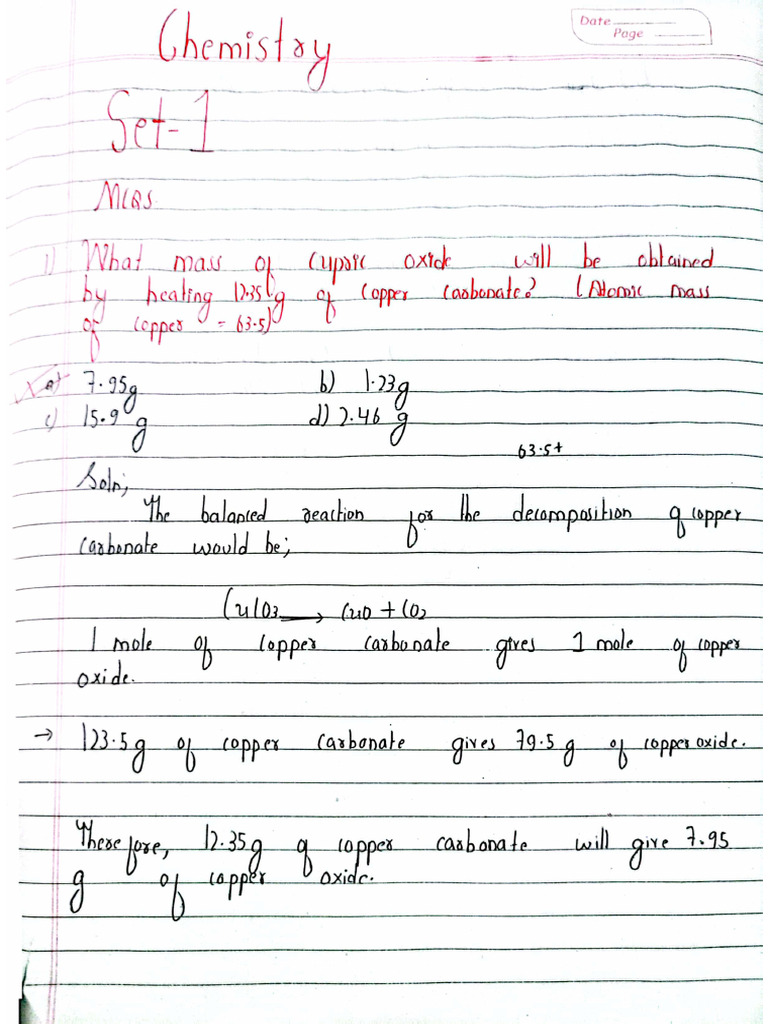 Date
Page
Chemistry
Set-1
MCQS.
1) What mass of cupric oxide will be obtained
by heating 12.35 g of copper carbonate? (Atomic mass
of copper = 63.5)
a) 7.95g b) 1.23g
c) 15.9 g d) 2.46 g
63.5+
Soln;
The balanced reaction for the decomposition of copper
carbonate would be;
CuCO3 → CuO + CO2
1 mole of copper carbonate gives 1 mole of copper
oxide.
→ 123.5g of copper carbonate gives 79.5 g of copper oxide.
Therefore, 12.35g of copper carbonate will give 7.95
g of copper oxide.